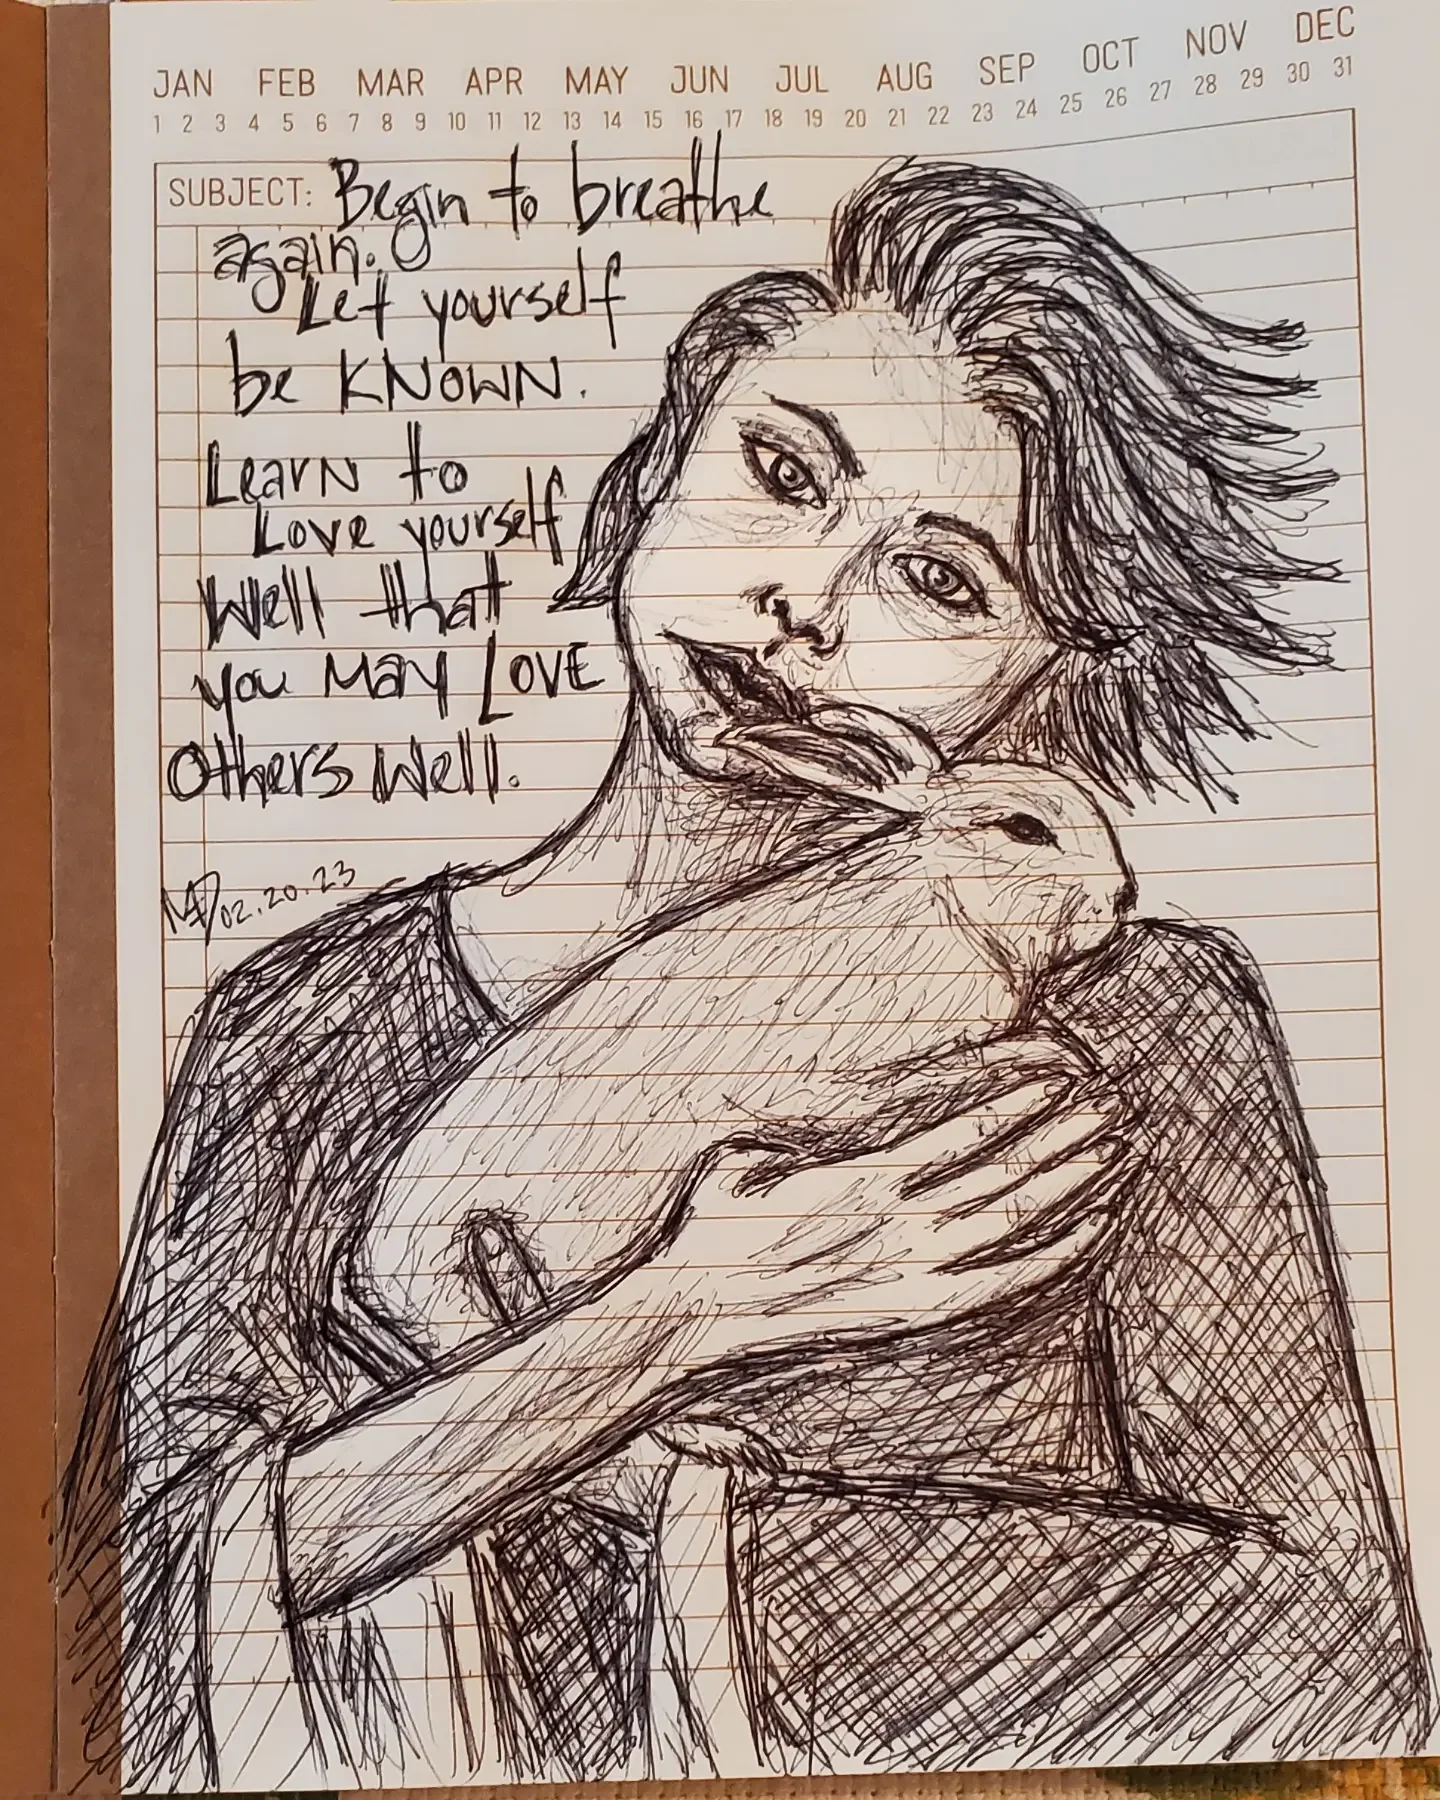 JAN FEB MAR APR MAY JUN JUL AUG SEP OCT NOV DEC
1 2 3 4 5 6 7 8 9 10 11 12 13 14 15 16 17 18 19 20 21 22 23 24 25 26 27 28 29 30 31
SUBJECT: Begin to breathe
again.
Let yourself
be KNOWN.
Learn to
Love yourself
Well that
you May LOVE
Others Well.
02.20.23